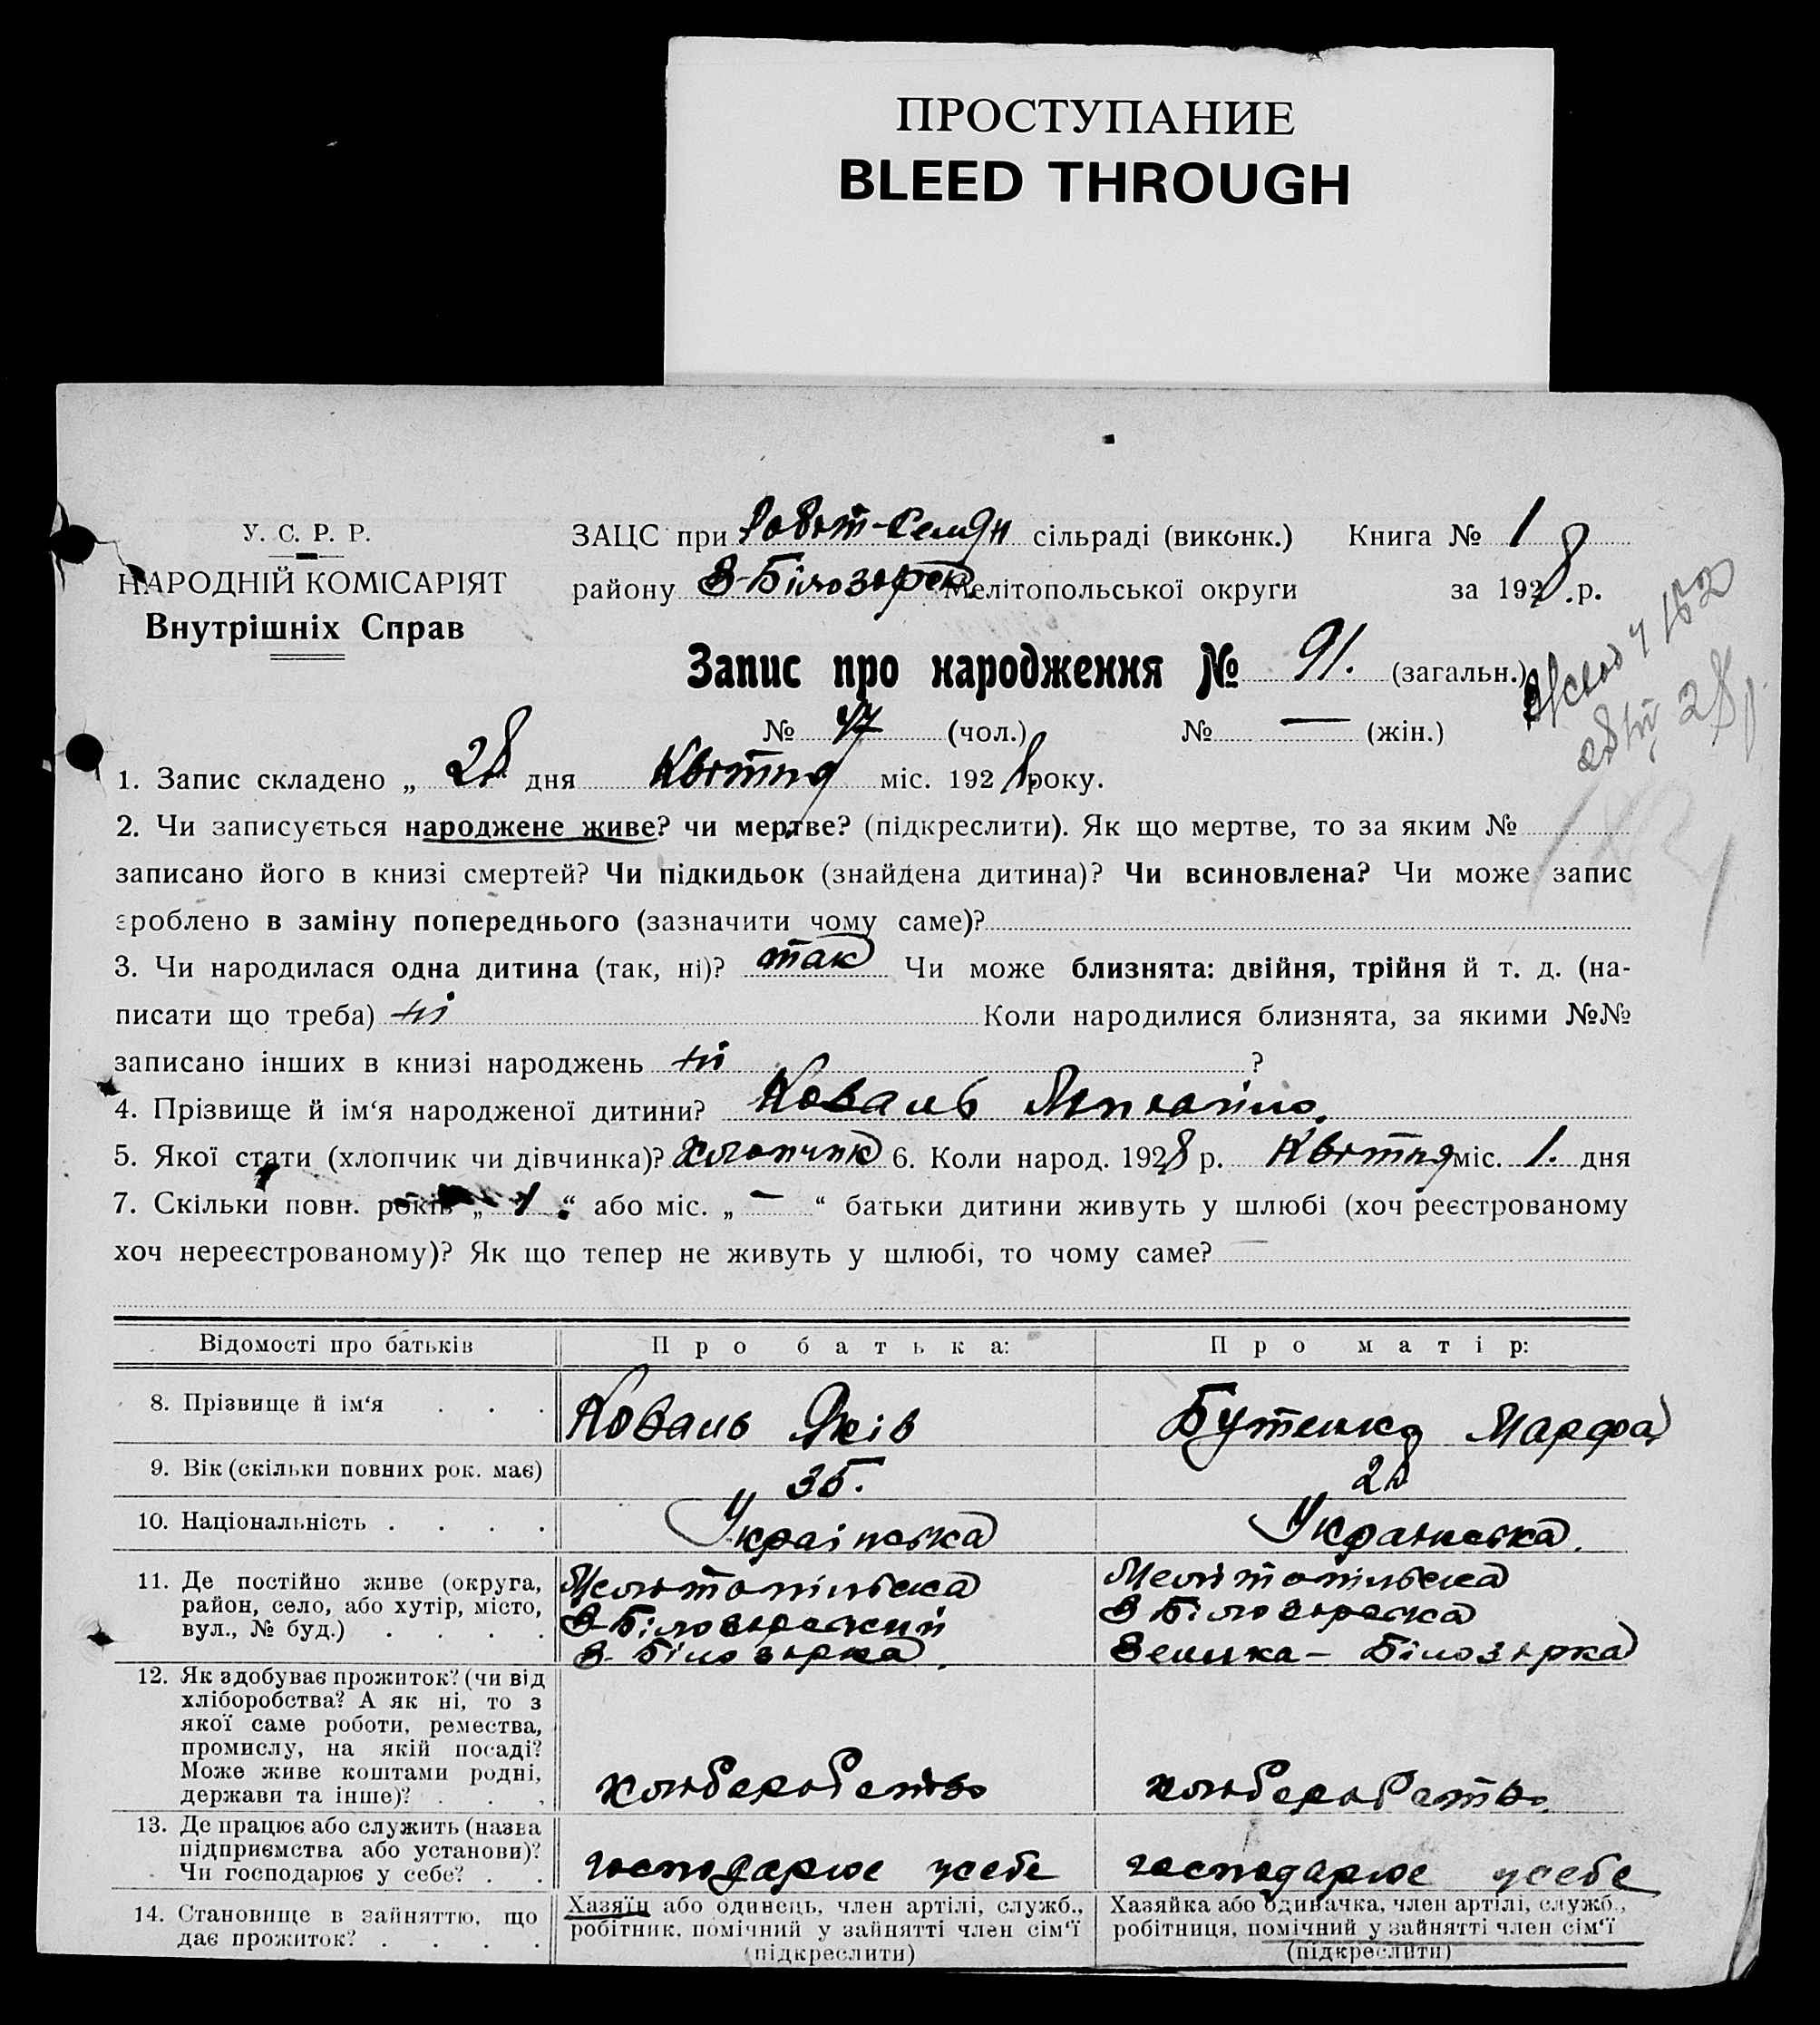 ПРОСТУПАНИЕ
BLEED THROUGH
У. С. Р. Р.
НАРОДНІЙ КОМІСАРІЯТ
Внутрішніх Справ
ЗАЦС при сільраді (виконк.) Книга № 1
району В-Білозерськ Мелітопольської округи за 1928 .р.
Запис про народження № 91. (загальн.)
№ 47 (чол.) № — (жін.)
1. Запис складено „ 28 дня Квітня міс. 1928 року.
2. Чи записується народжене живе? чи мертве? (підкреслити). Як що мертве, то за яким №
записано його в книзі смертей? Чи підкидьок (знайдена дитина)? Чи всиновлена? Чи може запис
зроблено в заміну попереднього (зазначити чому саме)?
3. Чи народилася одна дитина (так, ні)? так Чи може близнята: двійня, трійня й т. д. (на-
писати що треба) ні Коли народилися близнята, за якими №№
записано інших в книзі народжень ні ?
4. Прізвище й ім‘я народженої дитини? Коваль
5. Якої стати (хлопчик чи дівчинка)? хлопчик 6. Коли народ. 1928 р. Квітня міс. 1. дня
7. Скільки повн. років „ 1 “ або міс. „ — “ батьки дитини живуть у шлюбі (хоч реєстрованому
хоч нереєстрованому)? Як що тепер не живуть у шлюбі, то чому саме? —
Відомості про батьків Про батька: Про матір:
8. Прізвище й ім‘я . . . Коваль Яків Бутенко Марфа
9. Вік (скільки повних рок. має) 35. 28
10. Національність . . . . Українська Українська.
11. Де постійно живе (округа, Мелітопільська Мелітопільська
район, село, або хутір, місто, В-Білозерський В Білозерська
вул., № буд.) . . . . В-Білозірка. Велика – Білозірка
12. Як здобуває прожиток? (чи від
хліборобства? А як ні, то з
якої саме роботи, ремества,
промислу, на якій посаді?
Може живе коштами родні, хліберобство хліберобство
держави та інше)? . . .
13. Де працює або служить (назва
підприємства або установи)?
Чи господарює у себе? . . господарює усебе господарює усебе
14. Становище в зайняттю, що Хазяїн або одинець, член артілі, служб., Хазяйка або одиначка, член артілі, служб.,
дає прожиток? . . . . робітник, помічний у зайнятті член сім‘ї робітниця, помічний у зайнятті член сім‘ї
(підкреслити) (підкреслити)